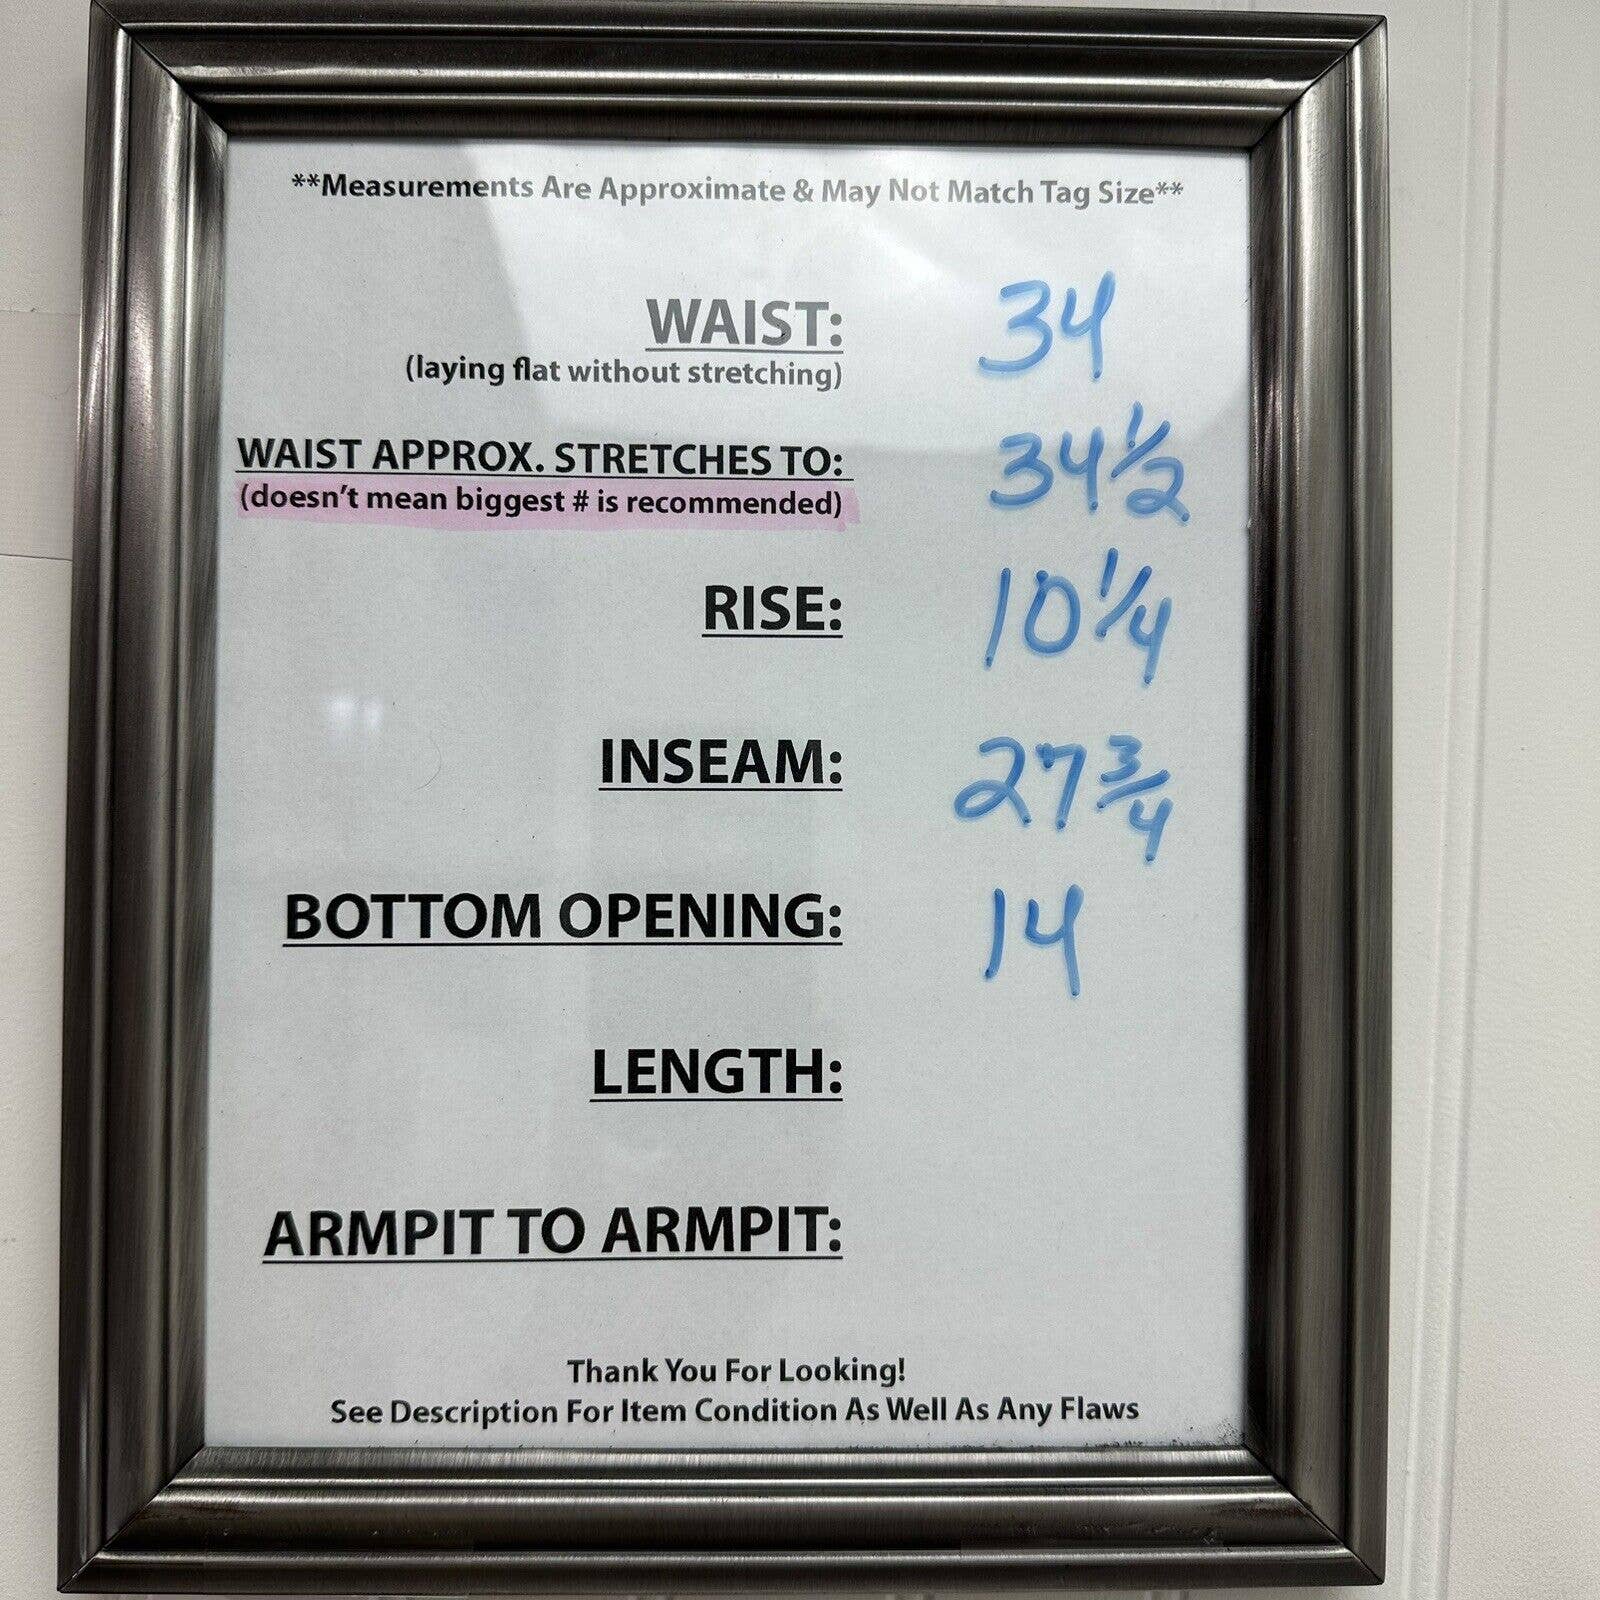 **Measurements Are Approximate & May Not Match Tag Size**
WAIST: 34
(laying flat without stretching)
WAIST APPROX. STRETCHES TO: 34 1/2
(doesn't mean biggest # is recommended)
RISE: 10 1/4
INSEAM: 27 3/4
BOTTOM OPENING: 14
LENGTH:
ARMPIT TO ARMPIT:
Thank You For Looking!
See Description For Item Condition As Well As Any Flaws